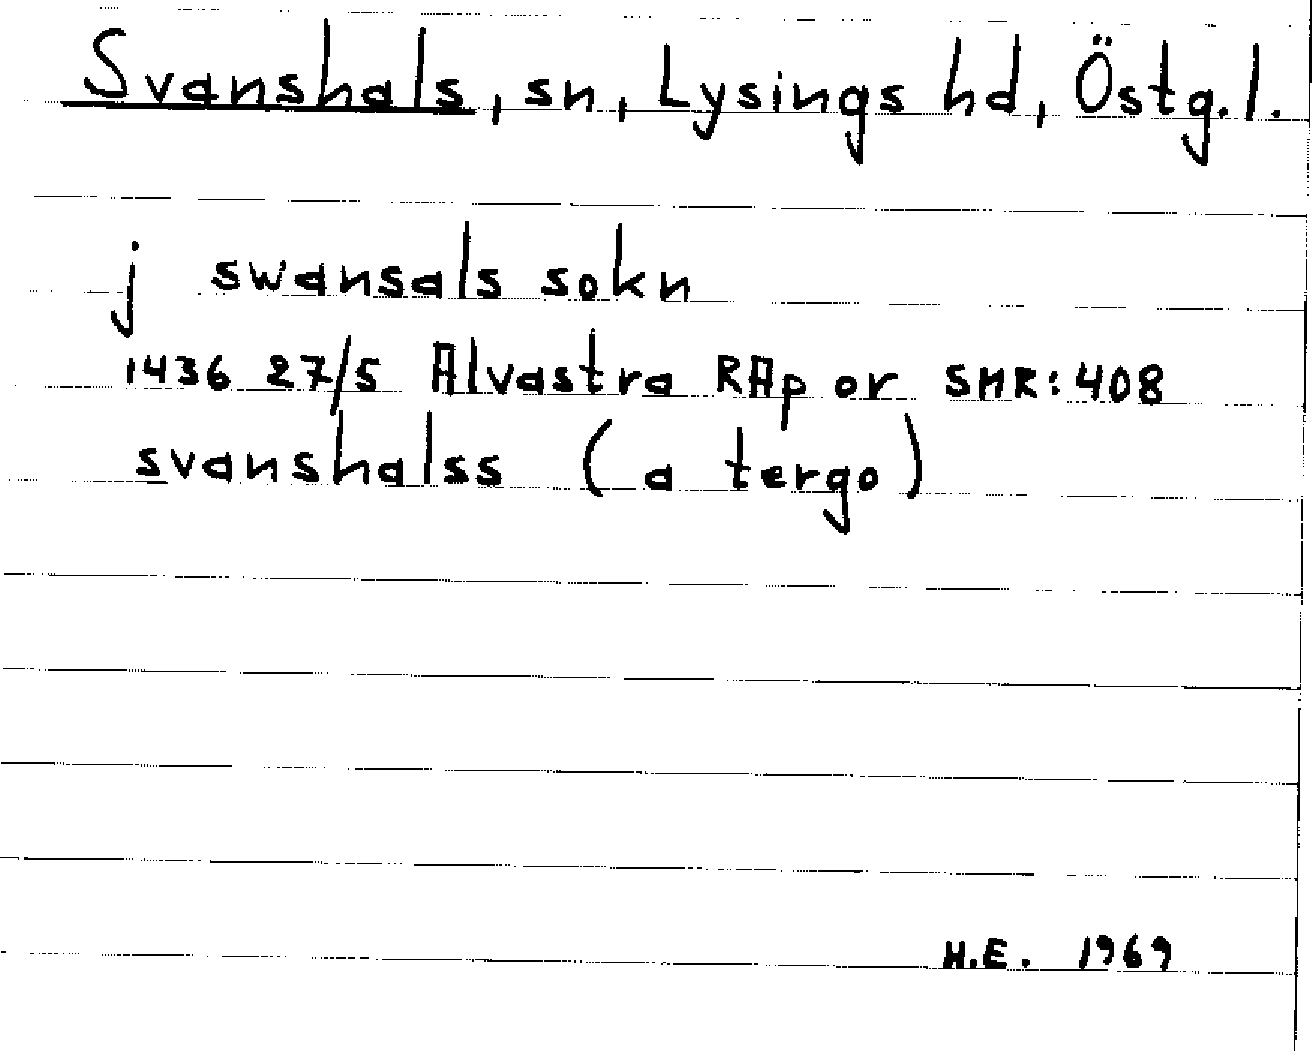 Svanshals, sn, Lysings hd, Östg.l.
j swansals sokn
1436 27/5 Alvastra RAp or SMR:408
svanshalss (a tergo)
H.E. 1969